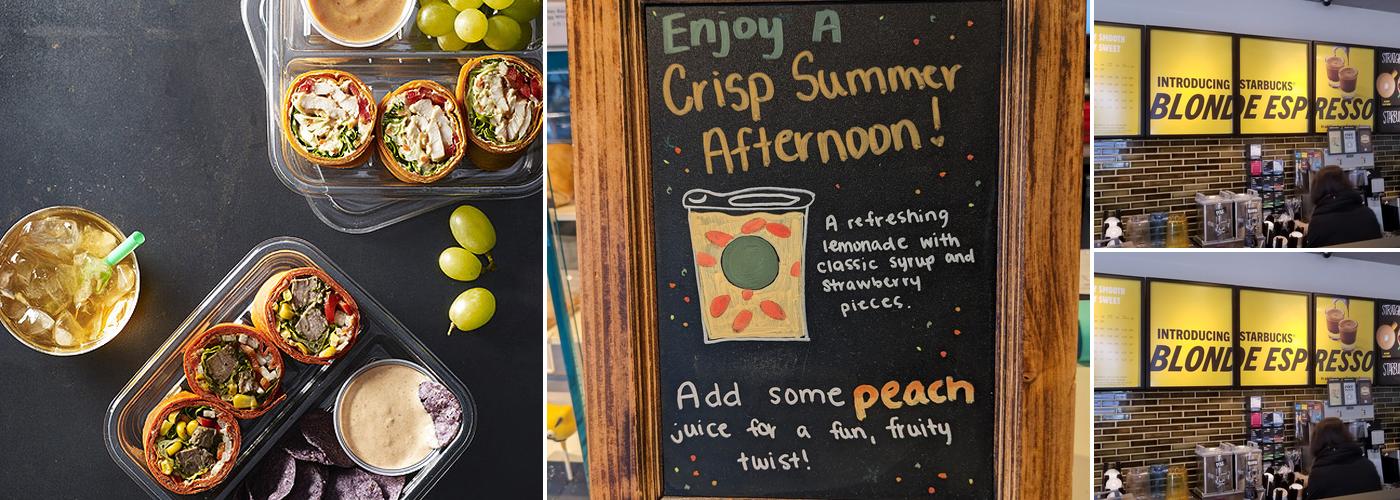 Enjoy A
Crisp Summer
Afternoon!
A refreshing
lemonade with
classic syrup and
strawberry
pieces.
Add some peach
juice for a fun, fruity
twist!
Y SMOOTH
Y SWEET
INTRODUCING STARBUCKS®
BLONDE ESPRESSO
Y SMOOTH
Y SWEET
INTRODUCING STARBUCKS®
BLONDE ESPRESSO